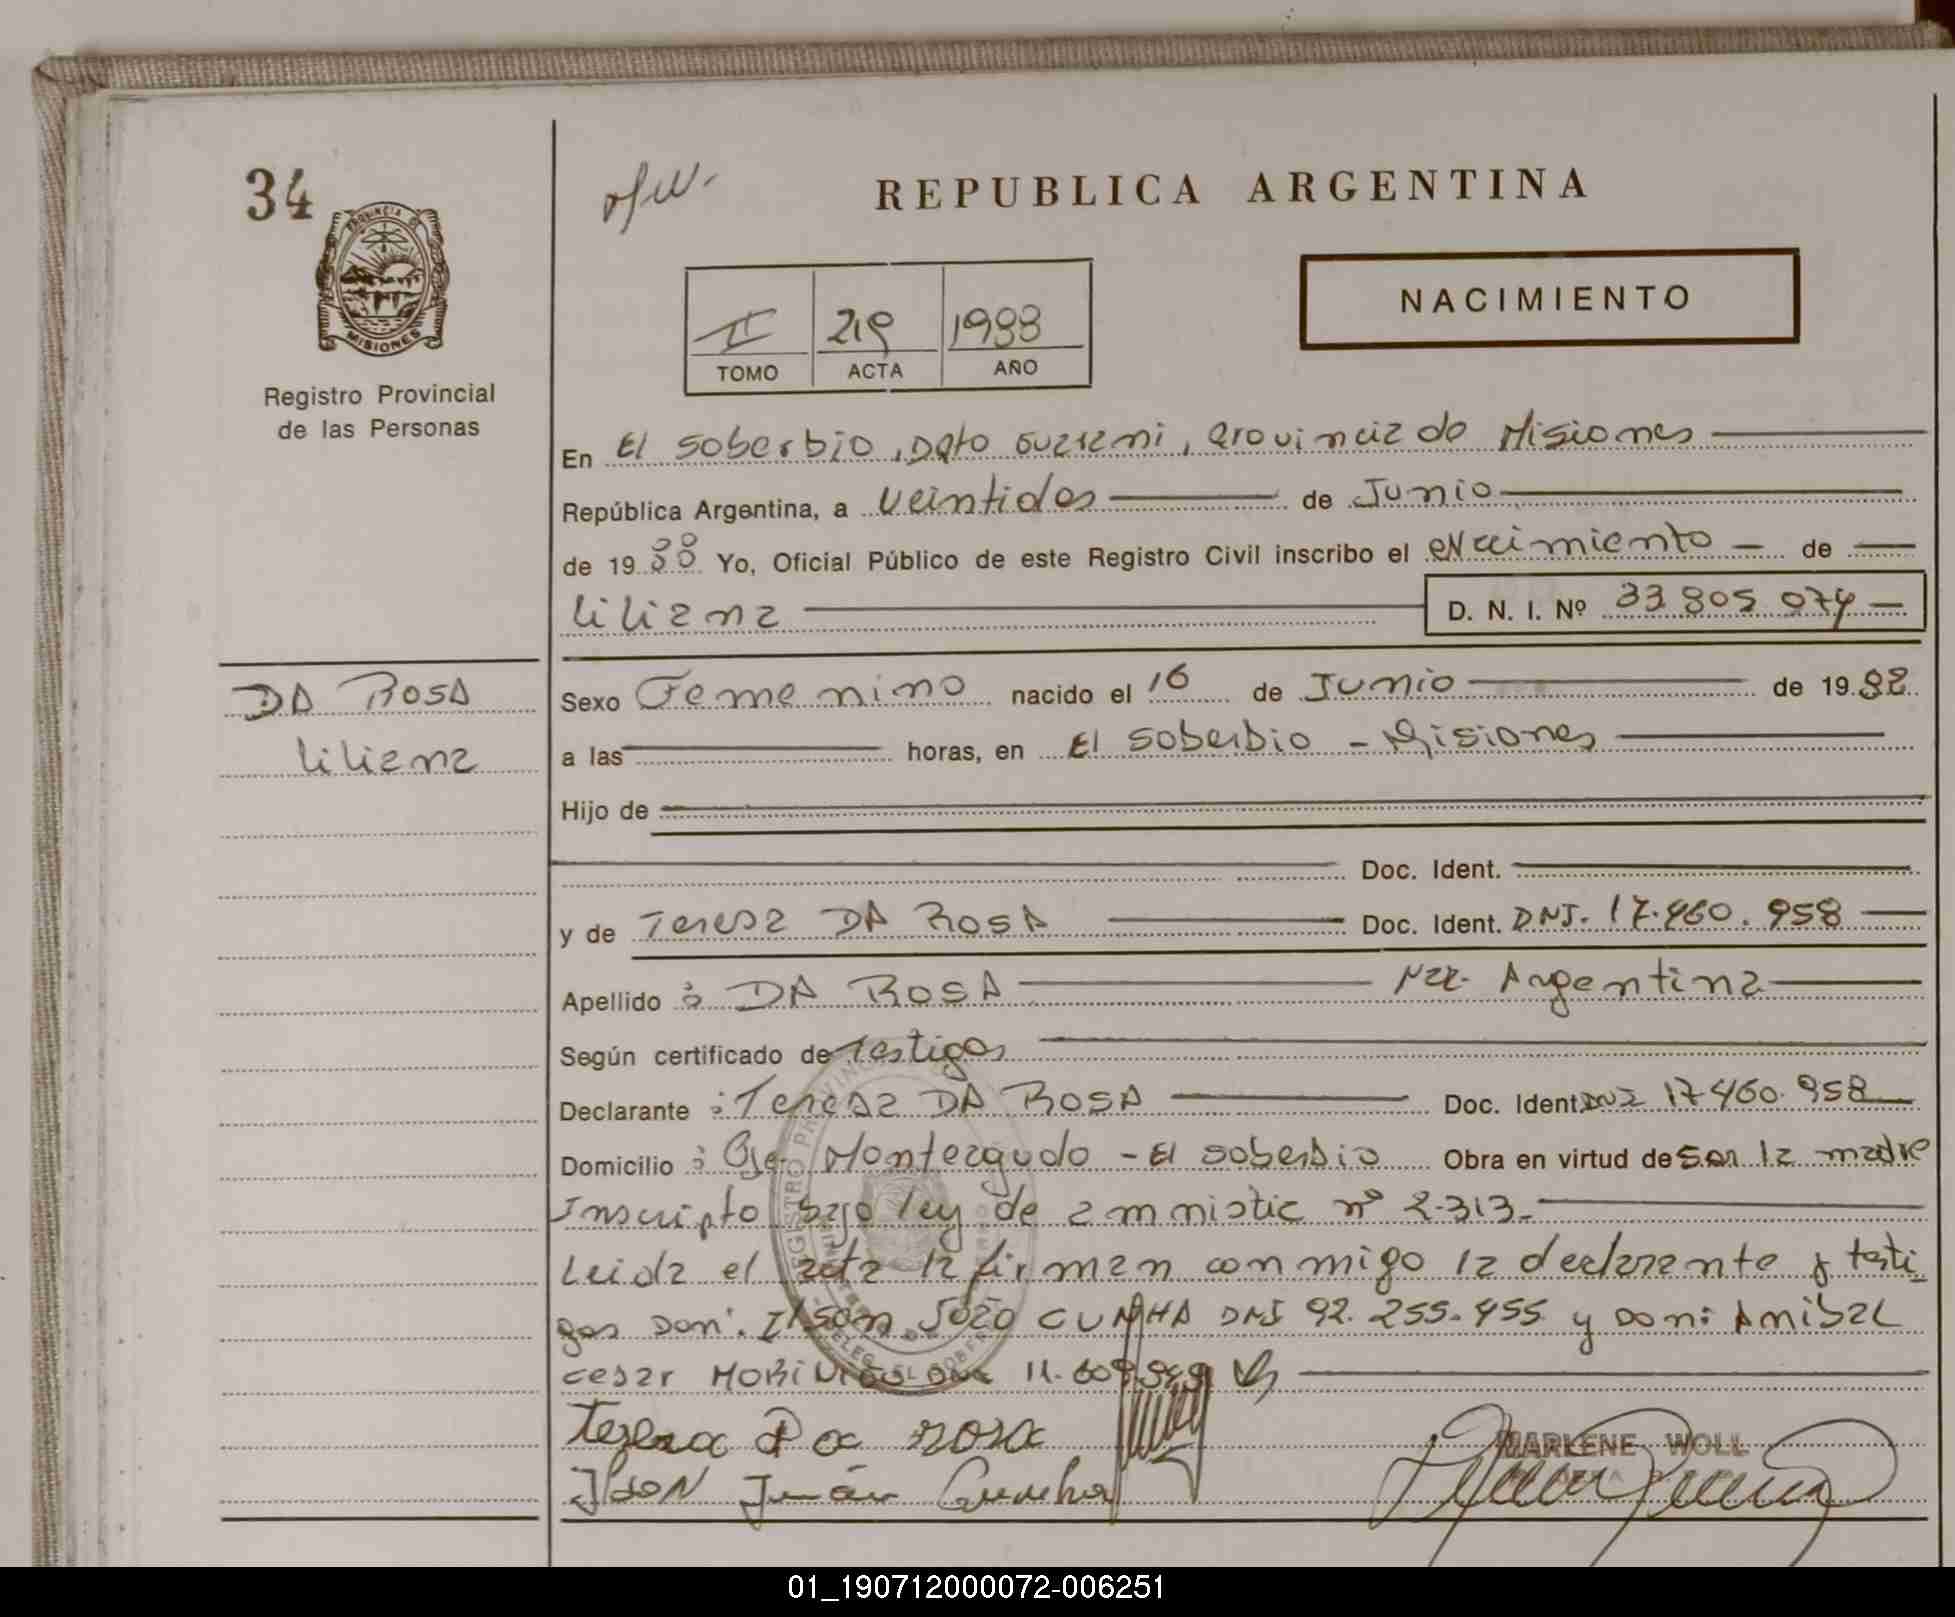 34
PROVINCIA DE
MISIONES
Registro Provincial
de las Personas
REPUBLICA ARGENTINA
NACIMIENTO
II 219 1988
TOMO ACTA AÑO
En El Soberbio, Dpto Guarani, Provincia de Misiones
República Argentina, a Veintidos de Junio
de 1988 Yo, Oficial Público de este Registro Civil inscribo el Nacimiento de
Liliana D. N. I. Nº 33 805 074
DA ROSA
Liliana
Sexo Femenino nacido el 16 de Junio de 1988
a las horas, en El Soberbio - Misiones
Hijo de
Doc. Ident.
y de Teresa DA ROSA Doc. Ident. DNI. 17.460.958
Apellido : DA ROSA Nac. Argentina
Según certificado de Testigos
Declarante : Teresa DA ROSA Doc. Ident. DNI 17460.958
Domicilio : Pje Monteagudo - El Soberbio Obra en virtud de ser la madre
Inscripto bajo ley de amnistia nº 2.313.-
Leida el acta la firman conmigo la declarante y testi
gos Don: Ilson João CUNHA DNI 92.255.455 y Don: Anibal
Cesar DNI
Teresa Da rosa
Ilson Juán Cunha
MARLENE WOLL
01_190712000072-006251